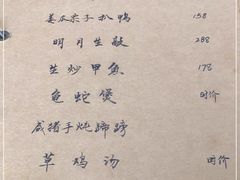 姜瓜炙子扒鸭 158
明月生敲 288
生炒甲鱼 178
龟蛇煲 时价
咸猪手炖蹄髈
草鸡汤 时价